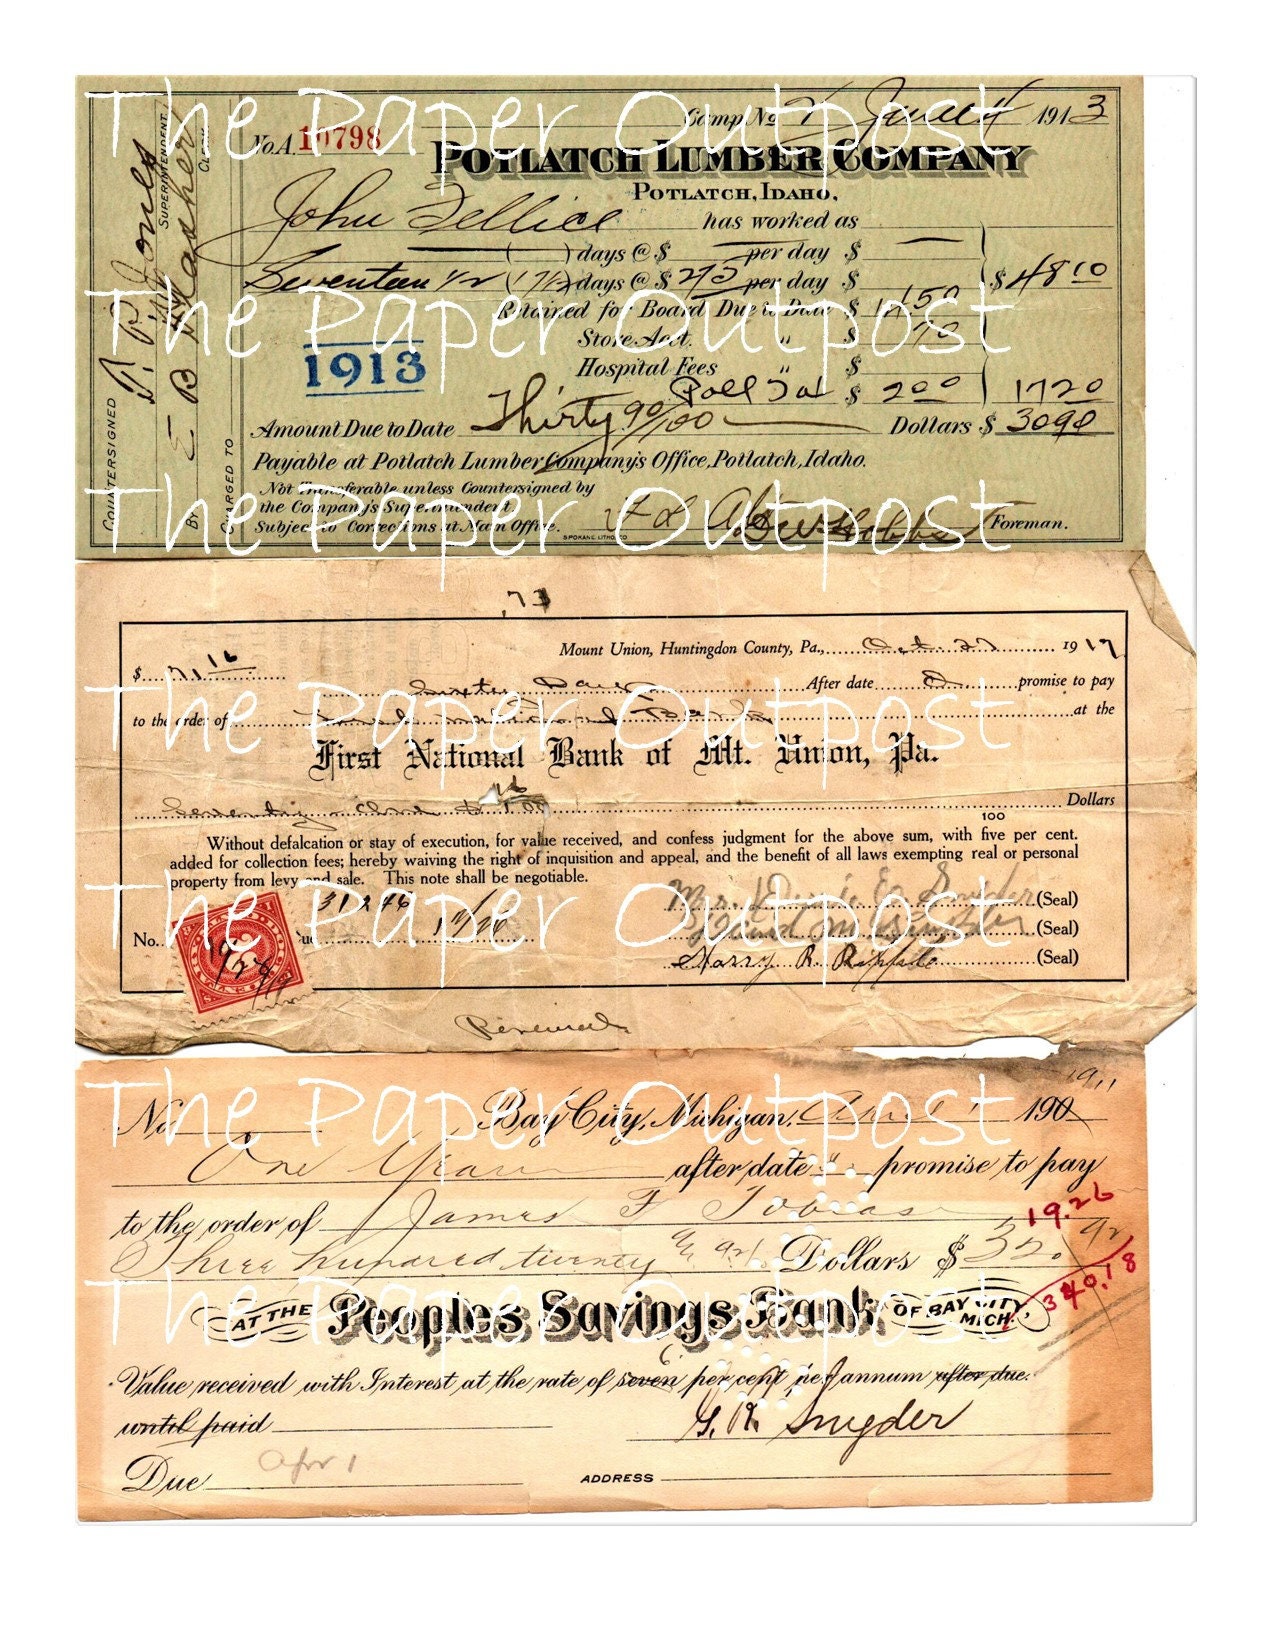 The Paper Outpost
Camp No. June 4 1913
No. A 10798
POTLATCH LUMBER COMPANY
POTLATCH, IDAHO,
John has worked as
( ) days @ $ per day $
Seventeen 1/2 (17 1/2) days @ $ 275 per day $ $ 48 10
Retained for Board Due to Date $ 1450
The Paper Outpost
Store Acct. " $ 70
1913
Hospital Fees " $
Poll Tax $ 200 1720
Amount Due to Date Thirty 90/100 Dollars $ 3090
Payable at Potlatch Lumber Company's Office, Potlatch, Idaho.
Not Transferable unless Countersigned by
the Company's Superintendent.
The Paper Outpost
Subject to Corrections at Main Office. Foreman.
SPOKANE LITHO. CO
COUNTERSIGNED
SUPERINTENDENT
BY
CLERK
CHARGED TO
.73
Mount Union, Huntingdon County, Pa., Oct. 27 1917
$ 71.16
After date promise to pay
The Paper Outpost
to the order of at the
First National Bank of Mt. Union, Pa.
16
Seventy Dollars
100
Without defalcation or stay of execution, for value received, and confess judgment for the above sum, with five per cent.
added for collection fees; hereby waiving the right of inquisition and appeal, and the benefit of all laws exempting real or personal
property from levy and sale. This note shall be negotiable.
The Paper Outpost
31246
Snyder (Seal)
(Seal)
No.
Harry R. (Seal)
Renewal
1911
The Paper Outpost
No. Bay City, Michigan, April 1 190
One Year after date promise to pay
to the order of James F Tobias
19.26
Three hundred twenty & 92/ Dollars $ 320.92
340.18
The Paper Outpost
AT THE Peoples Savings Bank OF BAY CITY, MICH.
6
Value received with Interest at the rate of seven per cent per annum after due.
until paid G. R. Snyder
Due Apr 1
ADDRESS